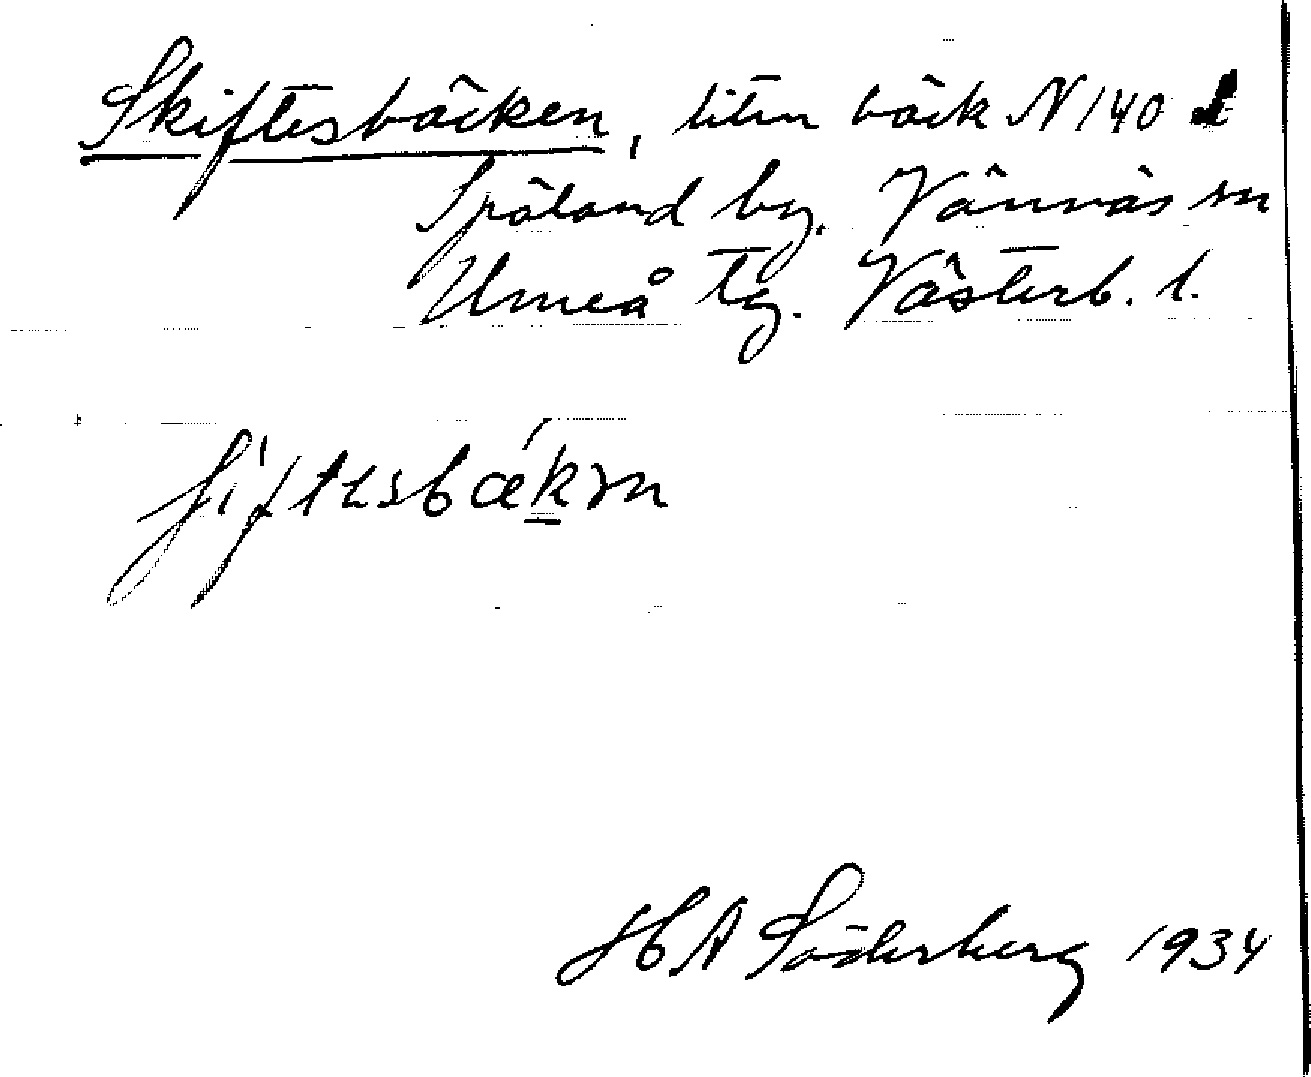 Skiftesbäcken, liten bäck N 140
Spöland by. Vännäs sn
Umeå tg. Västerb. l.
H A Söderberg 1934